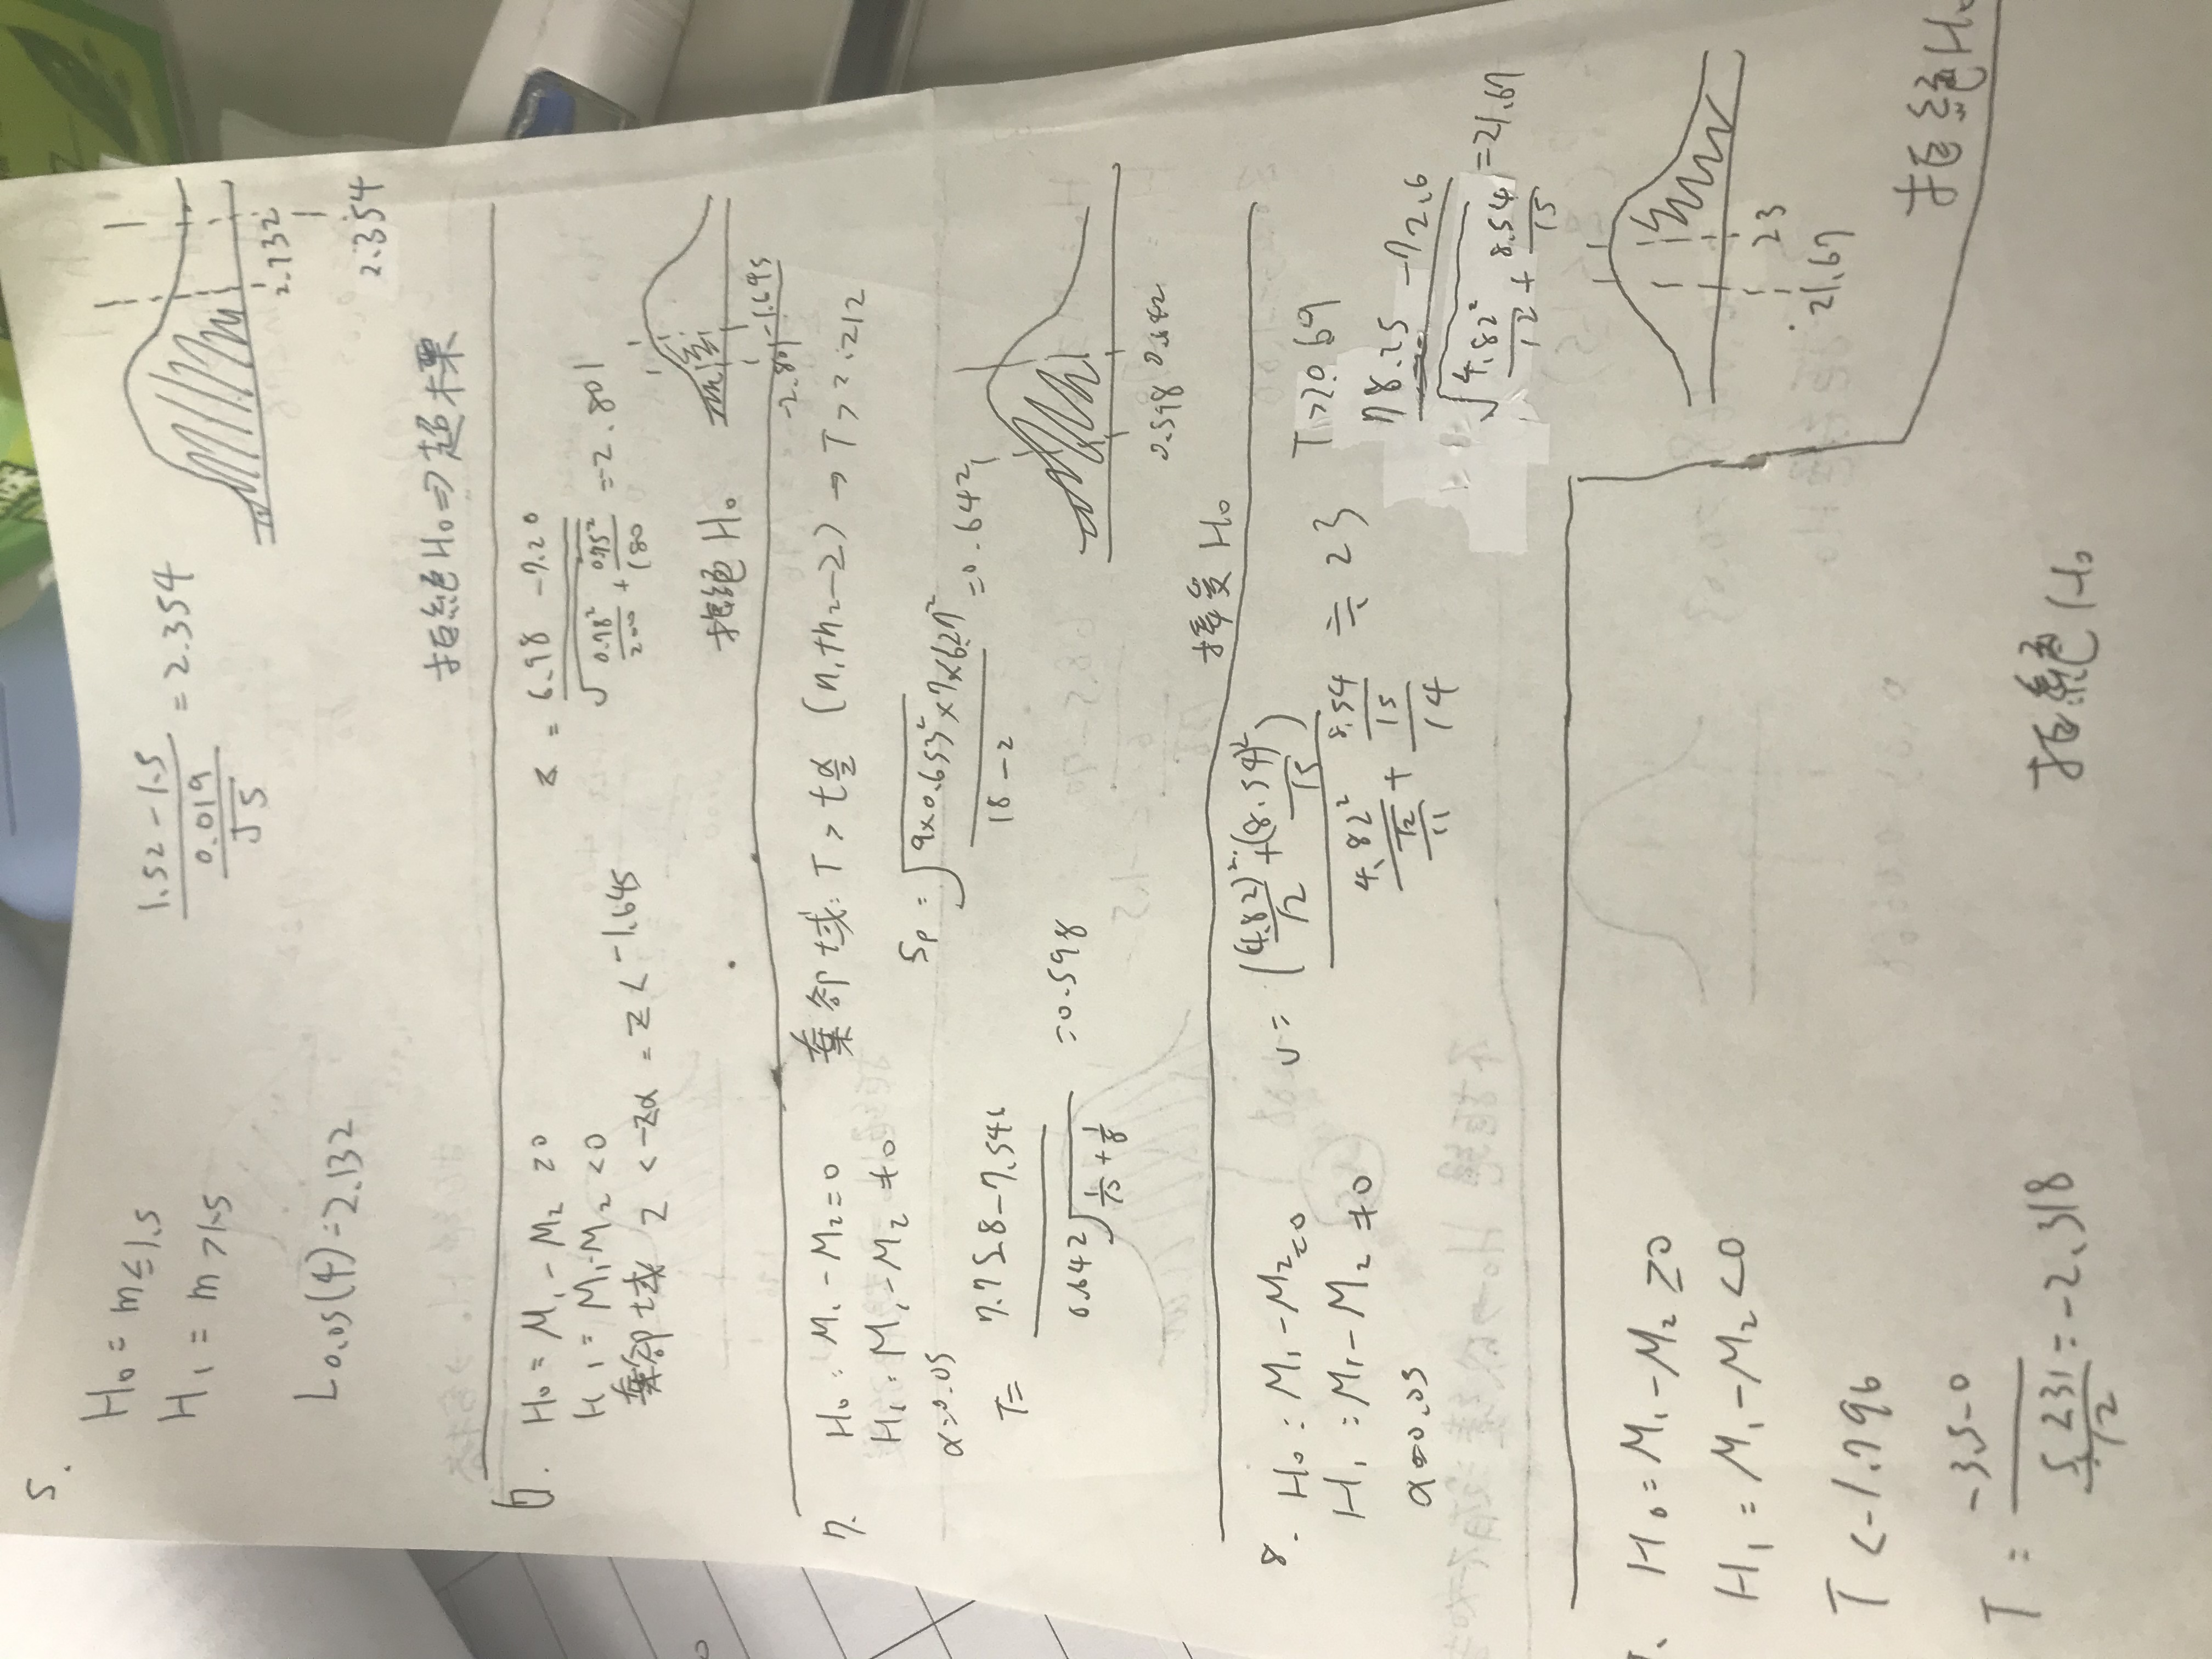 5.
H₀ = m ≤ 1.5
H₁ = m > 1.5
(1.52 - 1.5) / (0.019 / √5) = 2.354
L0.05(4) = 2.132
2.132
2.354
拒絕H₀ ⇒ 超標
6. H₀ = M₁ - M₂ ≥ 0
H₁ = M₁ - M₂ < 0
棄卻域 Z < -Zα = Z < -1.645
z = (6.98 - 7.20) / √(0.78²/200 + 0.75²/180) = -2.801
拒絕 H₀
-2.801 -1.645
7. H₀ : M₁ - M₂ = 0
H₁ : M₁ - M₂ ≠ 0
α = 0.05
棄卻域: T > t α/2 (n₁+n₂-2) → T > 2.212
Sp = √(9×0.653² × 7×627²) / (18 - 2) = 0.642
T = (7.758 - 7.546) / (0.642 √(1/10 + 1/8)) = 0.598
0.598 0.642
接受 H₀
8. H₀ : M₁ - M₂ = 0
H₁ : M₁ - M₂ ≠ 0
α = 0.05
v = ((4.82)²/12 + (8.54)²/15) / (4.82²/12/11 + 8.54/15/14) ≒ 23
T > 2.069
(78.25 - 72.6) / √(4.82²/12 + 8.54/15) = 21.67
23
21.67
拒絕 H₀
H₀ = M₁ - M₂ ≥ 0
H₁ = M₁ - M₂ < 0
T < -1.796
T = (-3.5 - 0) / (5.231 / 12) = -2.318
拒絕 H₀